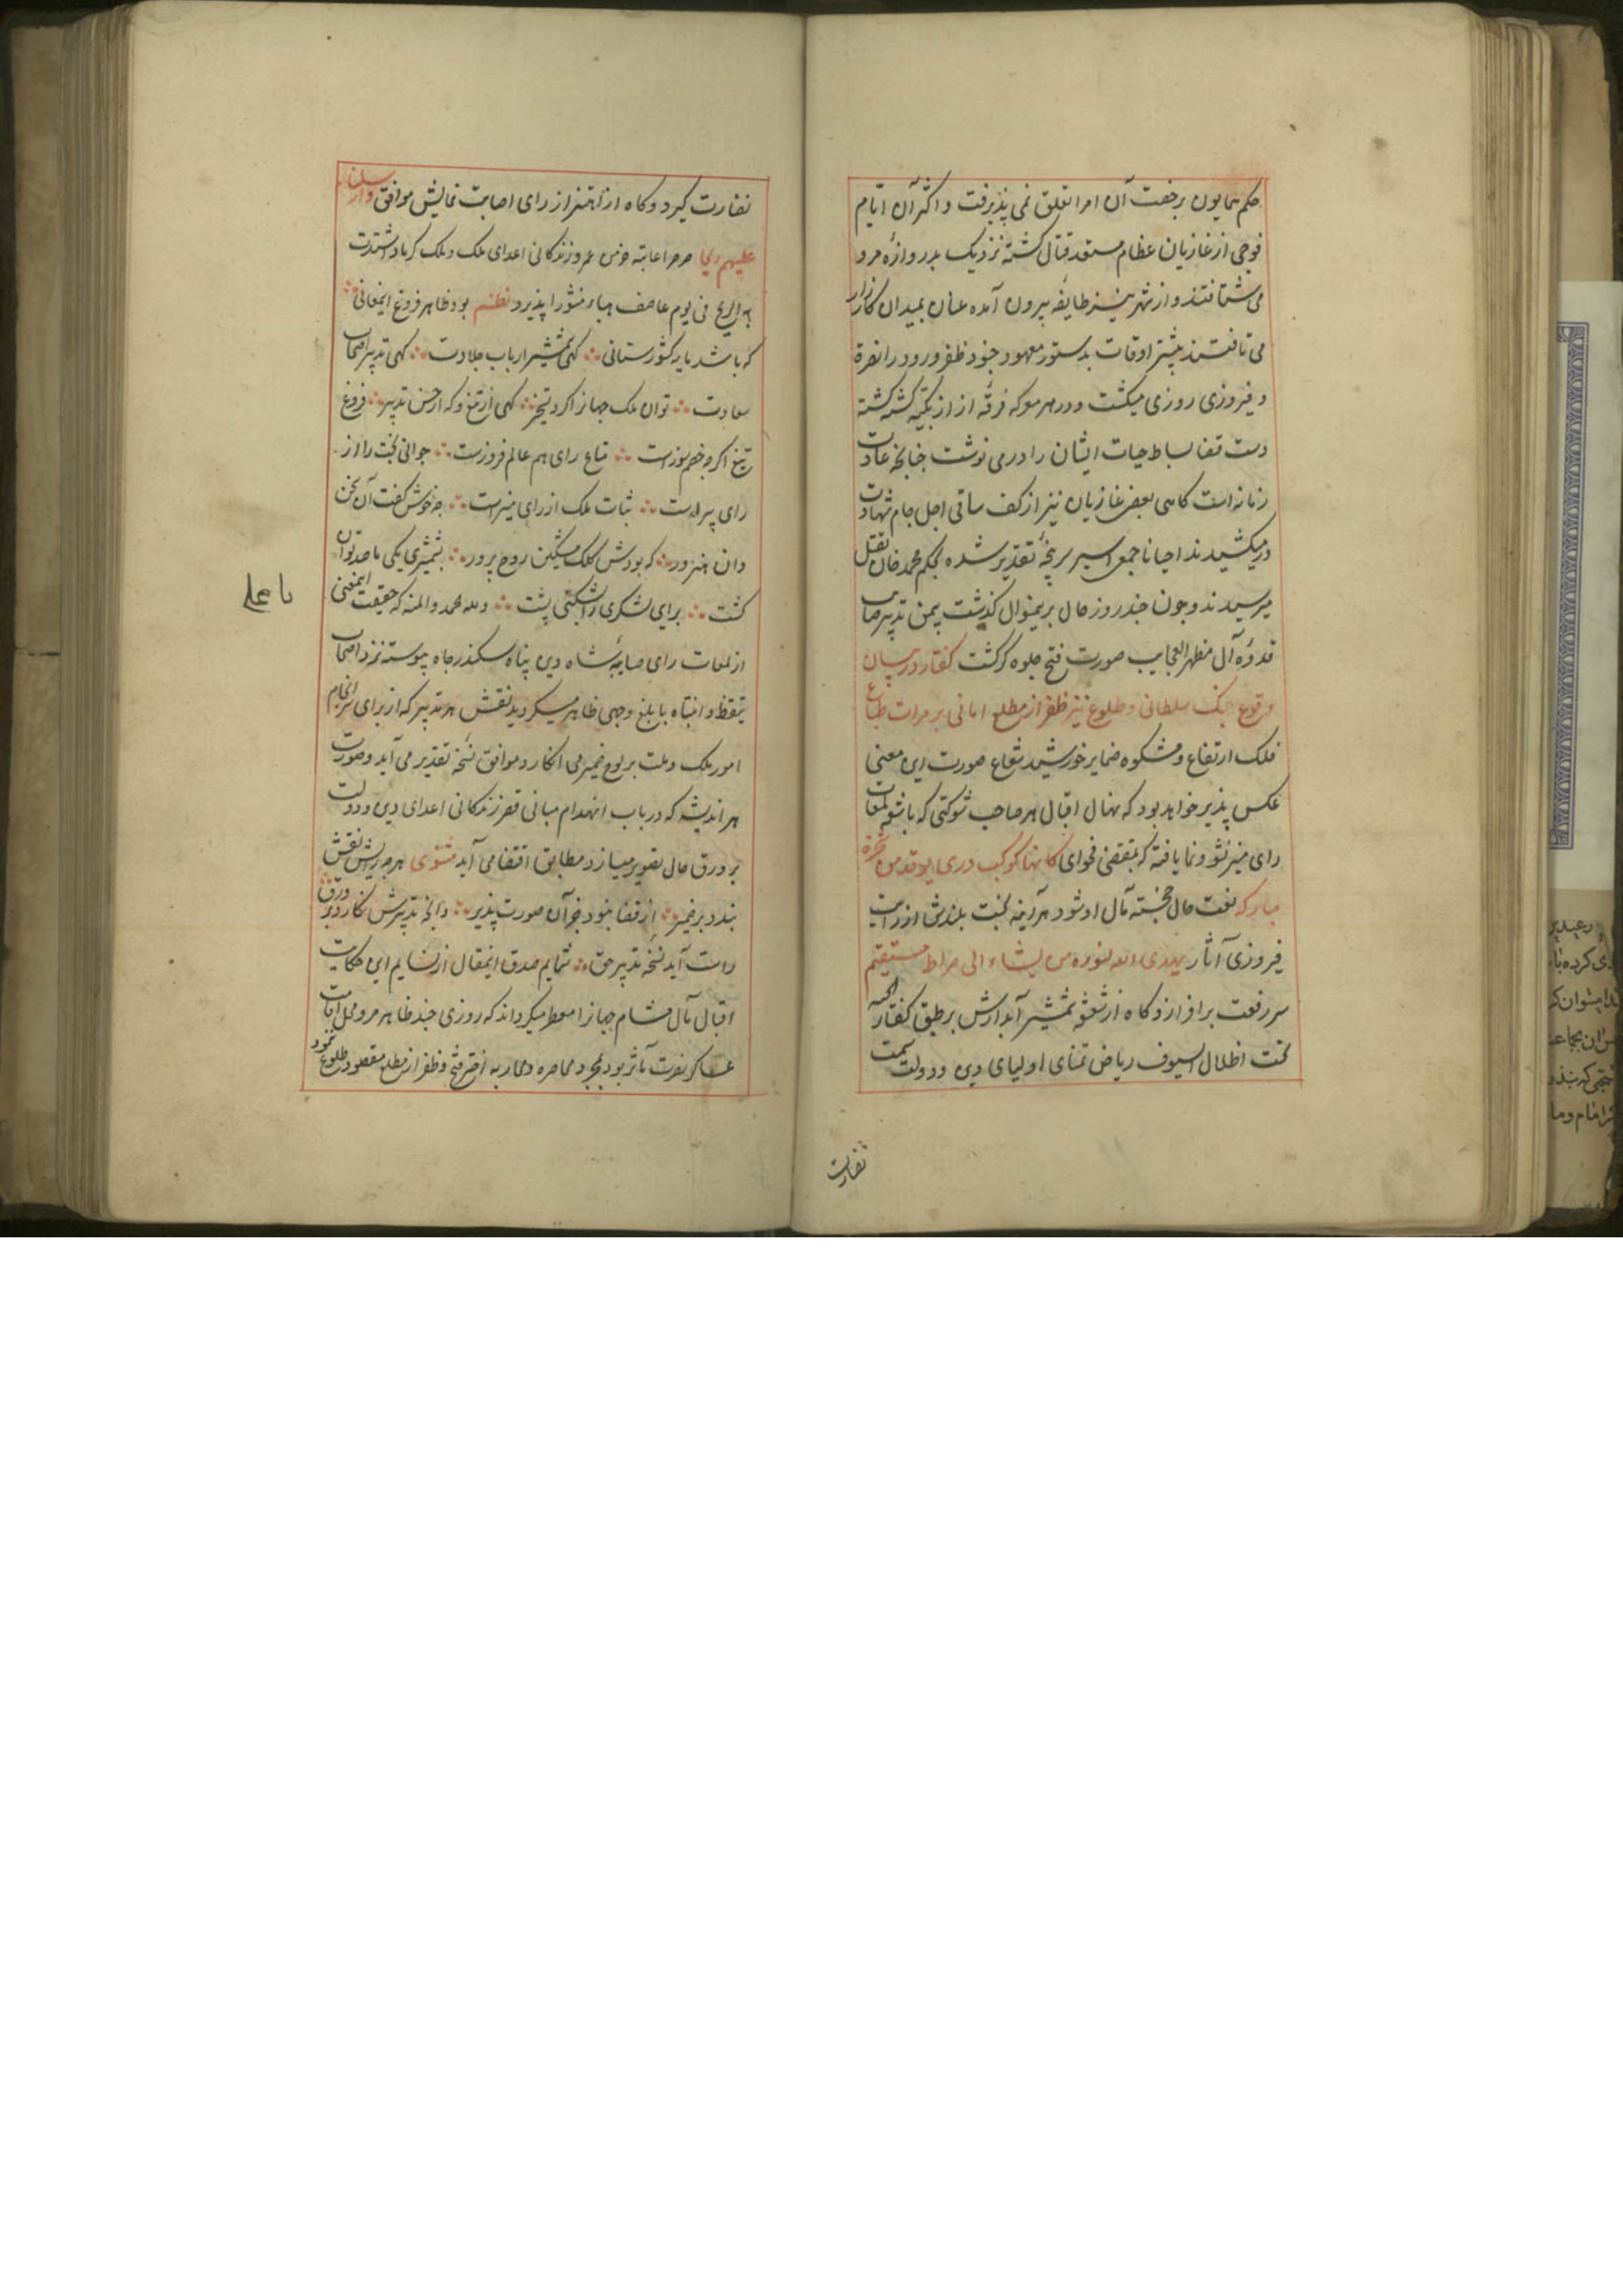 حکم همایون برخصت آن امرا تعلق نمی پذیرفت و اکثر آن ایام
فوجی از غازیان عظام مستعد قتال کشته نزدیک بدروازهٔ مرو
می شتافتند و از شهر نیز طایفه بیرون آمده عنان بمیدان کارزار
می تافتند بیشتر اوقات بدستور معهود جنود ظفر ورود را نصرة
و فیروزی روزی میکشت و در هر معرکه فرقه از ازبکیه کشته کشته
دست قضا بساط حیات ایشان را در می نوشت چنانچه عادت
زمانه است کاهی بعضی غازیان نیز از کف ساقی اجل جام شهادت
در میکشیدند و احیانا جمعی اسیر سرپنجهٔ تقدیر شده بحکم محمد خان بقتل
میرسیدند و چون چند روز حال برینمنوال کذشت بیمن تدبیر صایب
قدوهٔ آل مظهر العجایب صورت فتح جلوه کر کشت کفتار در بیان
وقوع جنک سلطانی و طلوع نیر ظفر از مطلع امانی بر مرات طباع
فلک ارتفاع و مشکوه ضمایر خورشید شعاع صورت این معنی
عکس پذیر خواهد بود که نهال اقبال هر صاحب شوکتی که باشعه لمعات
رای منیر نشو و نما یافته که بمقتضی فحوای کانها کوکب دری یوقد من شجرة
مبارکه نعت حال خجسته مآل او شود هر آینه بخت بلندش از رایت
فیروزی آثار یهدی الله لنوره من یشاء الی صراط مستقیم
سر رفعت بر افرازد و کاه از شعشعه شمشیر آبدارش بر طبق کفتار الجنه
تحت اظلال السیوف ریاض تمنای اولیای دین و دولت سمت
نضارت
نضارت کیرد و کاه از اهتزاز رای اصابت نمایش موافق وارسلنا
علیهم ریحا صرصرا عاتیه خرمن عمر و زندکانی اعدای ملک و ملک کرماد اشتدت
به الریح فی یوم عاصف هباء منثورا پذیرد نظم بود ظاهر فروغ اینمعانی
که باشد یار کشورستانی کهی شمشیر ارباب جلادت کهی تدبیر اصحاب
سعادت توان ملک جهانرا کرد تسخیر کهی از تیغ و که از حسن تدبیر فروغ
تیغ اکرچه خصم سوزست شعاع رای هم عالم فروزست جوانی بخت را از
رای پیرست ثبات ملک از رای منیرست چه خوش کفت آن سخن
دان هنرور که بودش کلک مشکین روح پرور بشمشیری یکی تا صد توان
کشت برای لشکری را بشکنی پشت و لله الحمد والمنه که حقیقت اینمعنی
از لمعات رای صایبهٔ شاه دین پناه سکندر جاه پیوسته نزد اصحاب
تیقظ و انتباه بابلغ وجهی ظاهر میکردید نقش هر تدبیر که از برای سرانجام
امور ملک و ملت بر لوح ضمیر می انکارد موافق نسخه تقدیر می آید و صورت
هر اندیشه که در باب انهدام مبانی قصر زندکانی اعدای دین و دولت
بر ورق حال تصویر میسازد مطابق اقتضا می آید مثنوی هر چه رایش نقش
بندد بر ضمیر از قضا نبود جز آن صورت پذیر وانچه تدبیرش نکارد بر ورق
راست آید نسخه تدبیر حق شمایم صدق اینمقال از نسایم این حکایت
اقبال مآل مشام جهانرا معطر میکرداند که روزی چند ظاهر مرو محل اقامت
عساکر نصرت مآثر بود بمجرد محاصره و محاربه اختر فتح و ظفر از مطلع مقصود طلوع ننمود
یا علی